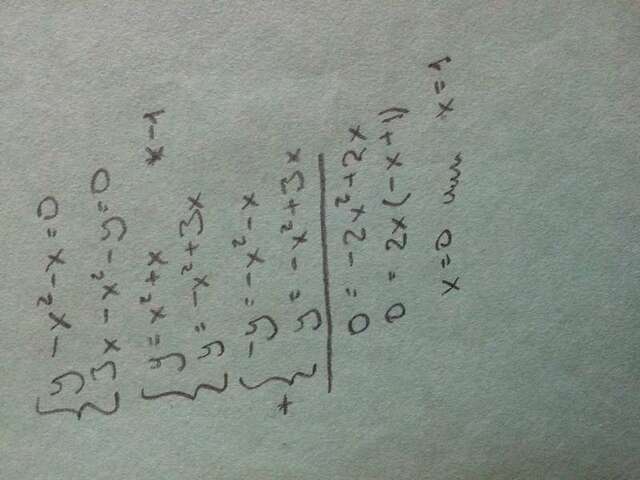 y - x² - x = 0
3x - x² - y = 0
y = x² + x × -1
y = -x² + 3x
-y = -x² - x
+ y = -x² + 3x
0 = -2x² + 2x
0 = 2x(-x + 1)
x = 0 или x = 1